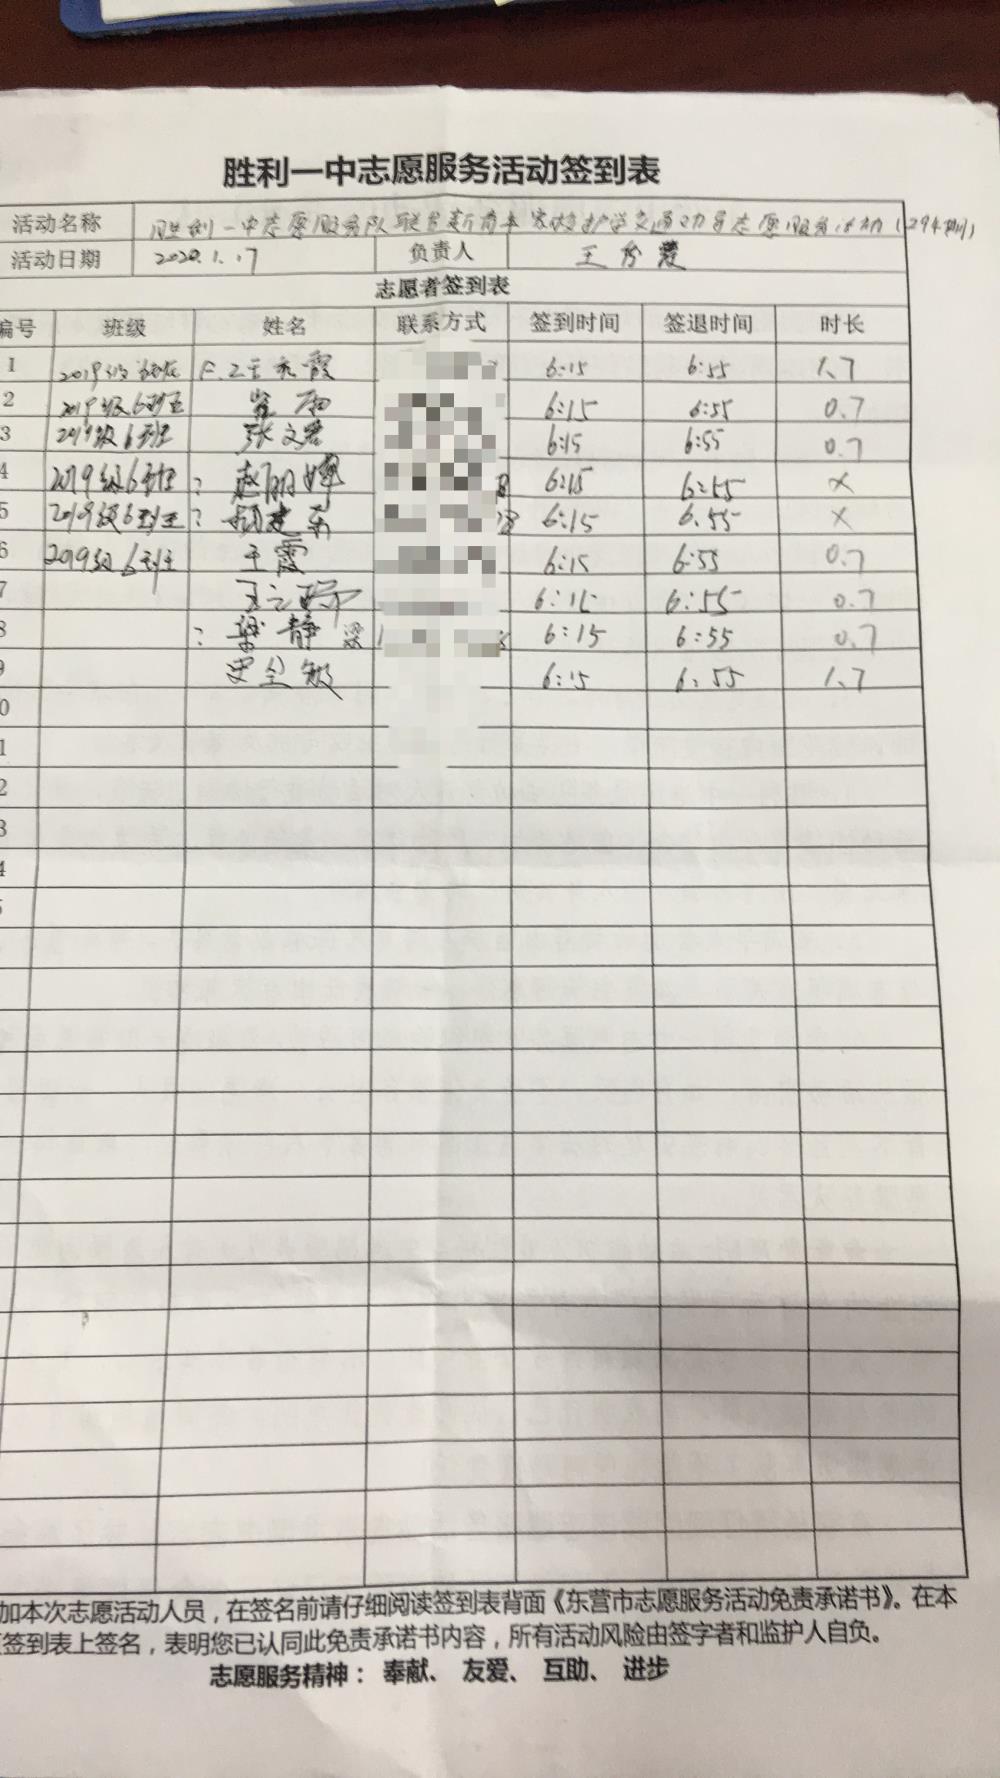 胜利一中志愿服务活动签到表
活动名称 胜利一中志愿服务队联合新育本家校护学交通劝导志愿服务活动(294期)
活动日期 2020.1.17 负责人 王
志愿者签到表
编号 班级 姓名 联系方式 签到时间 签退时间 时长
1 2019级 王 霞 6:15 6:55 1.7
2 2019级6班 6:15 6:55 0.7
3 2019级6班 张文 6:15 6:55 0.7
4 2019级6班 ? 赵丽婷 6:15 6:55 ×
5 2019级6班 ? 建 6:15 6:55 ×
6 2019级6班 王霞 6:15 6:55 0.7
7 王 6:15 6:55 0.7
8 ? 梁静 梁 6:15 6:55 0.7
9 敏 6:15 6:55 1.7
0
1
2
3
4
5
加本次志愿活动人员，在签名前请仔细阅读签到表背面《东营市志愿服务活动免责承诺书》。在本
签到表上签名，表明您已认同此免责承诺书内容，所有活动风险由签字者和监护人自负。
志愿服务精神： 奉献、 友爱、 互助、 进步